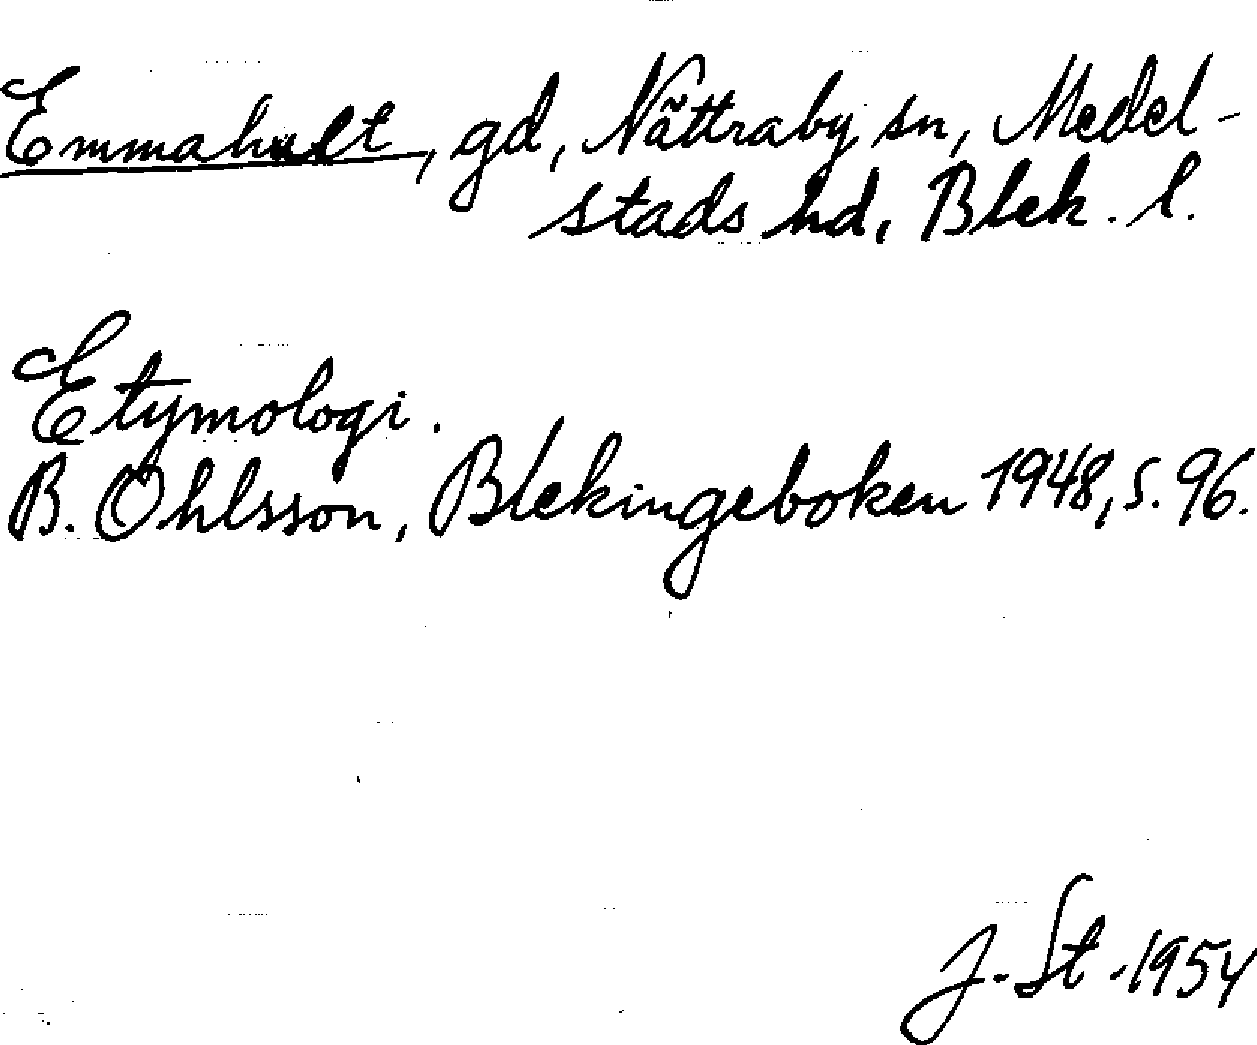 Emmahult, gd, Nättraby sn, Medel-
stads hd, Blek. l.
Etymologi.
B. Ohlsson, Blekingeboken 1948, s. 96.
J. St. 1954